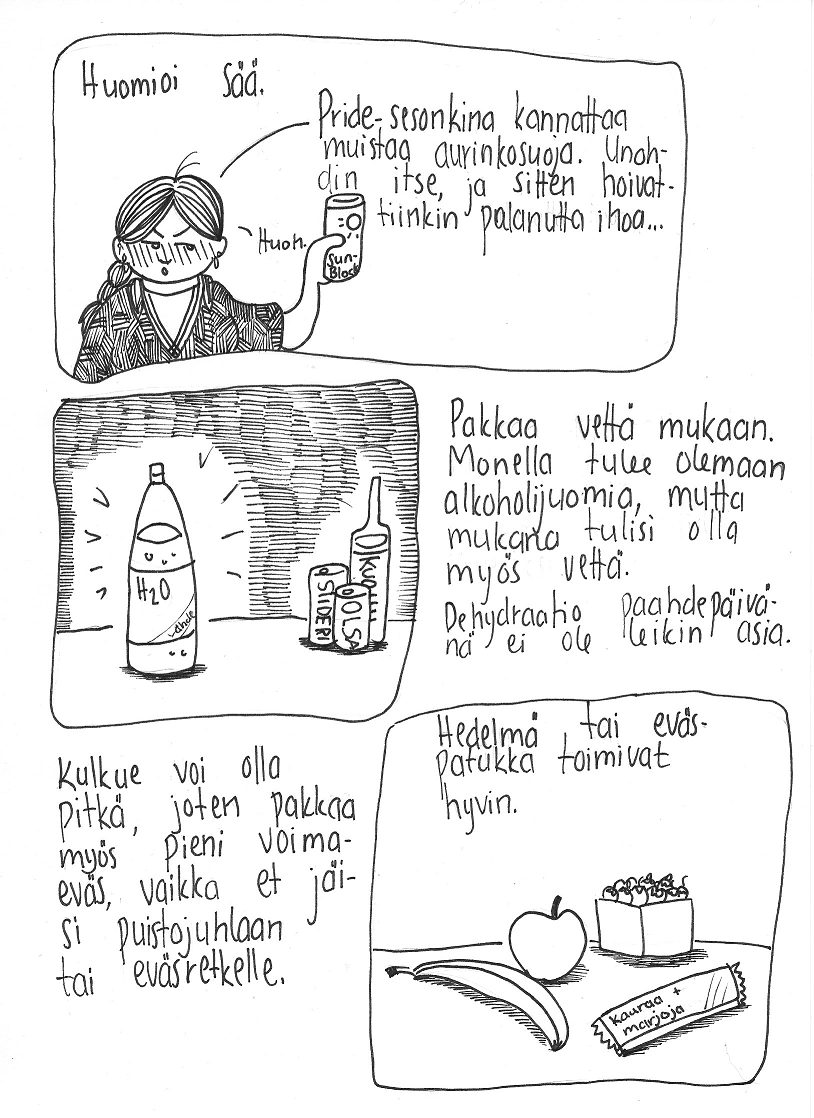 Huomioi sää.
Pride-sesonkina kannattaa
muistaa aurinkosuoja. Unoh-
din itse, ja sitten hoivat-
tiinkin palanutta ihoa...
Huoh.
Sun-
Block
Pakkaa vettä mukaan.
Monella tulee olemaan
alkoholijuomia, mutta
mukana tulisi olla
myös vettä.
Dehydraatio paahdepäivä-
nä ei ole leikin asia.
H2O
SIIDERI
OLSA
Kulkue voi olla
pitkä, joten pakkaa
myös pieni voima-
eväs, vaikka et jäi-
si puistojuhlaan
tai eväsretkelle.
Hedelmä tai eväs-
patukka toimivat
hyvin.
Kauraa +
marjoja